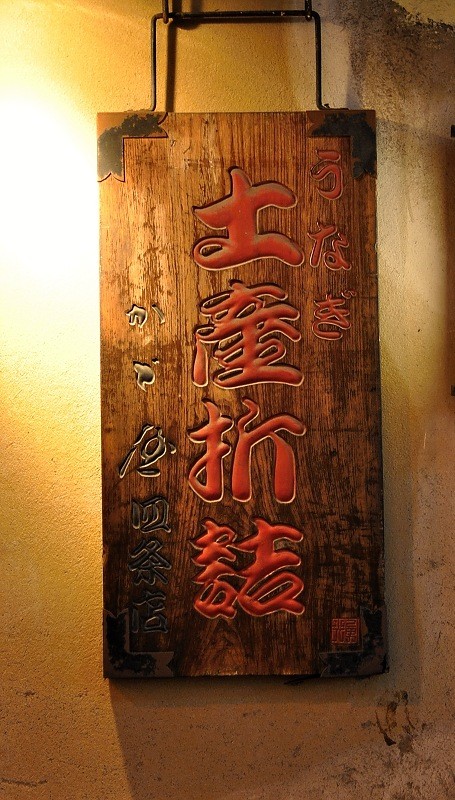 うなぎ
土産折詰
かね 㐂 四条店